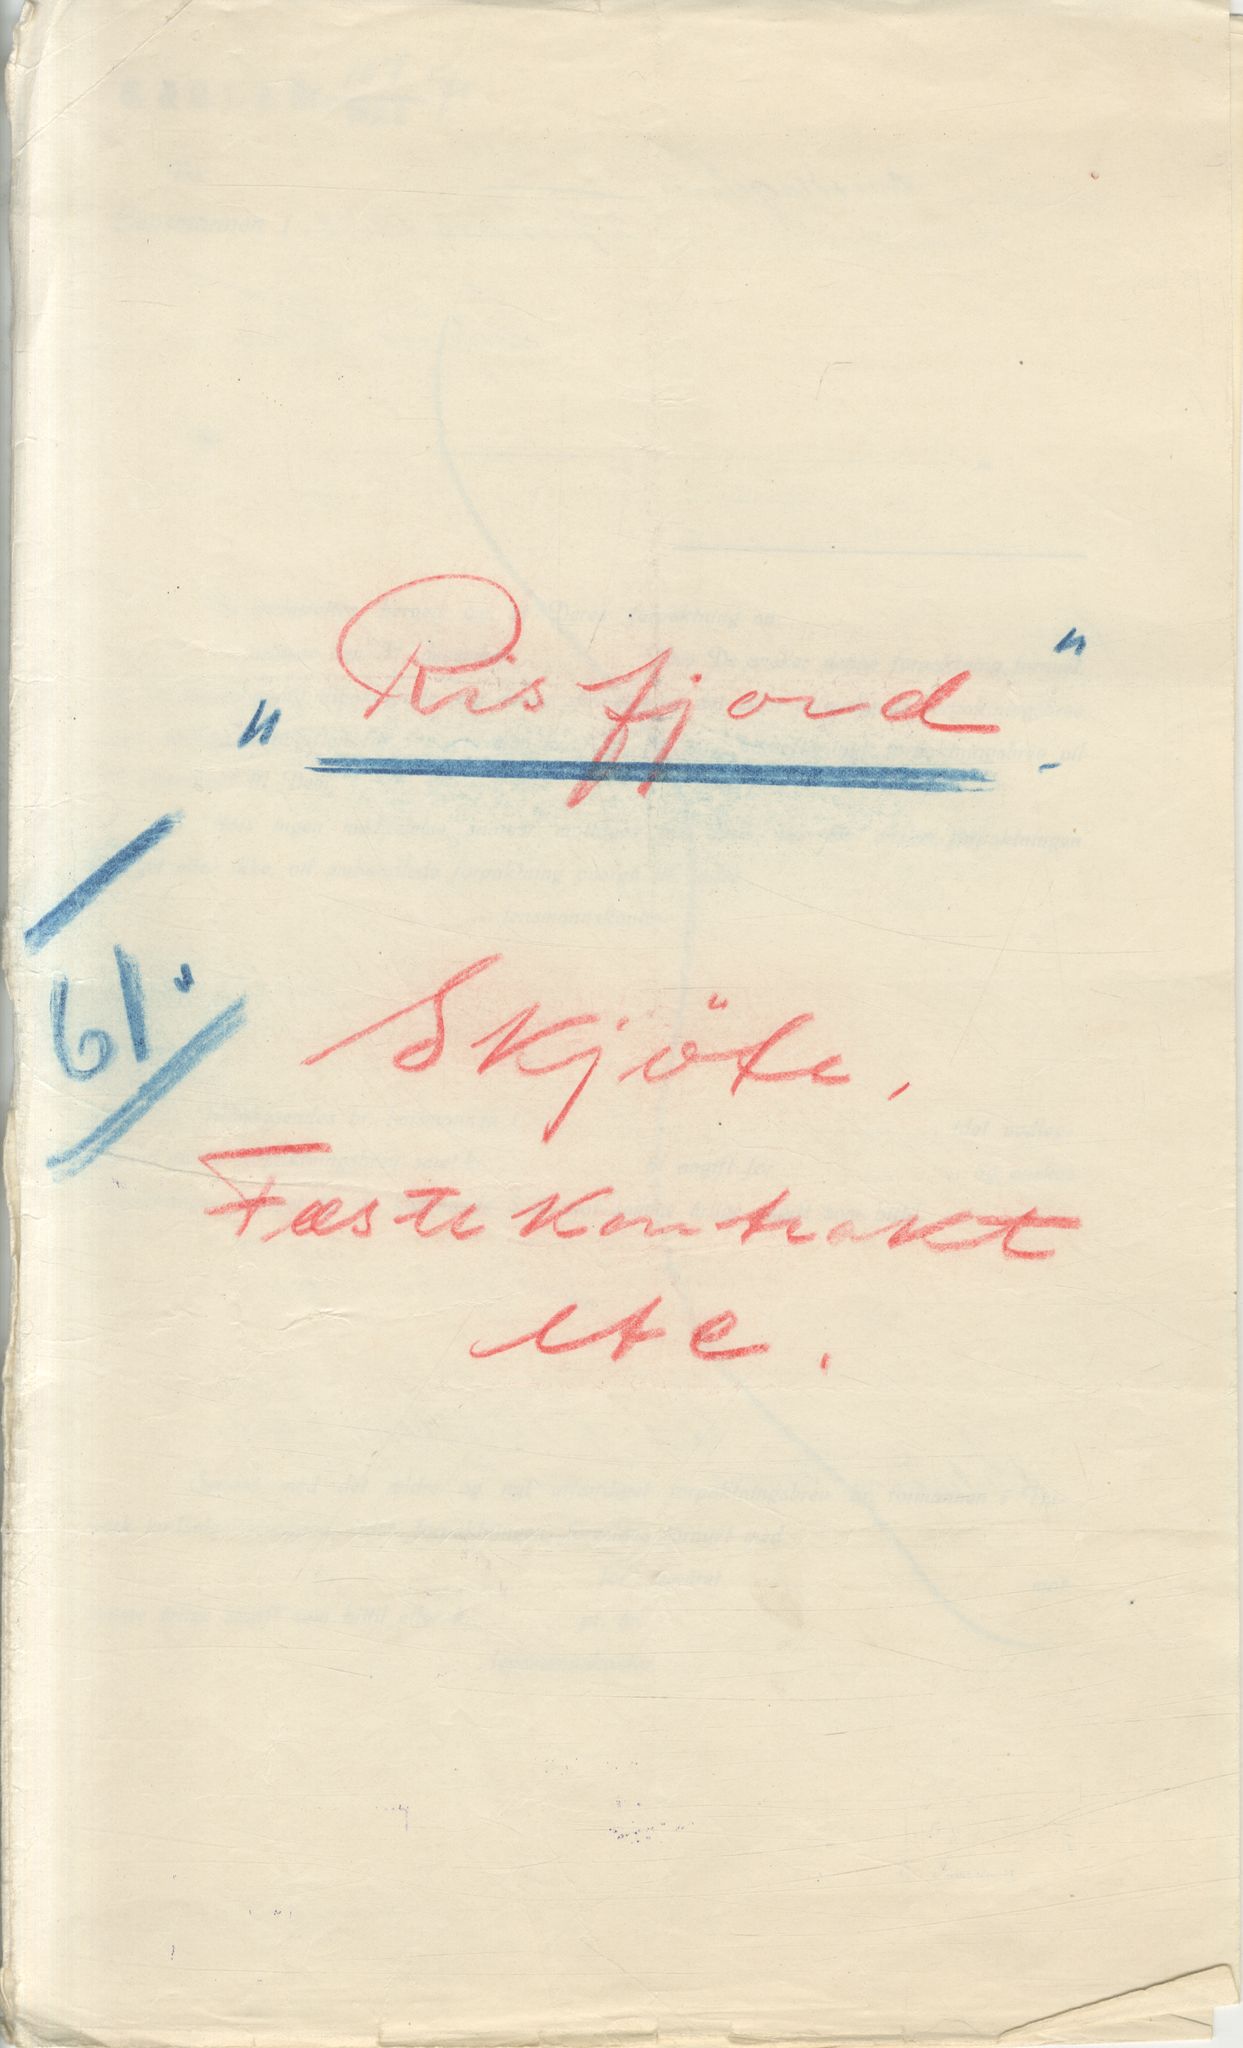 „Risfjord"
61.
Skjöte,
Fæstekontrakt
etc.